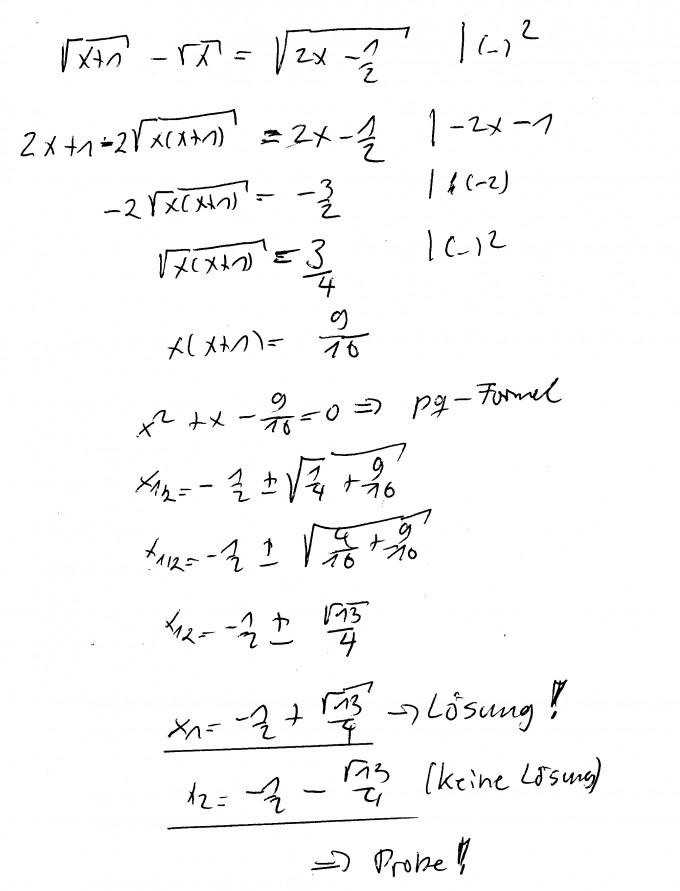 √(x+1) − √x = √(2x − 1/2) | (–)²
2x+1−2√(x(x+1)) = 2x − 1/2 | −2x −1
−2√(x(x+1)) = −3/2 | :(−2)
√(x(x+1)) = 3/4 | (–)²
x(x+1) = 9/16
x² + x − 9/16 = 0 ⇒ pq-Formel
x₁₂ = − 1/2 ± √(1/4 + 9/16)
x₁₂ = − 1/2 ± √(4/16 + 9/16)
x₁₂ = − 1/2 ± √13/4
x₁ = − 1/2 + √13/4 → Lösung!
x₂ = − 1/2 − √13/4 (keine Lösung)
⇒ Probe!